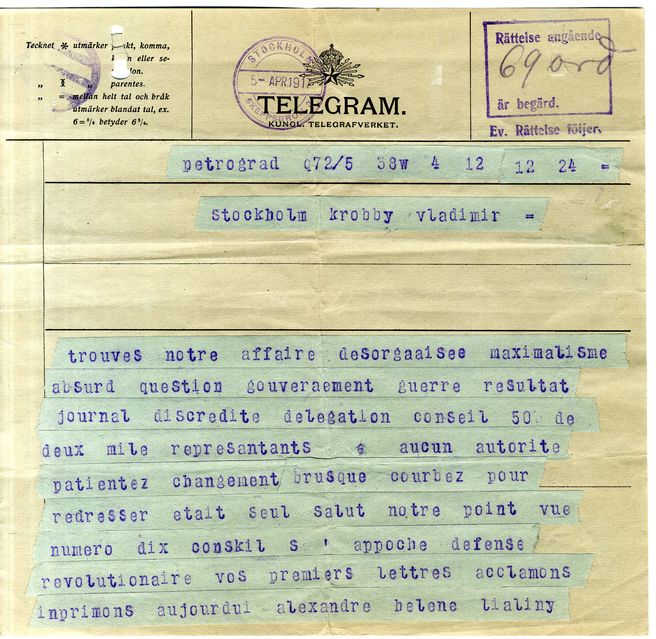 Tecknet * utmärker punkt, komma,
eller se-
„ parentes.
„ = mellan helt tal och bråk
utmärker blandat tal, ex.
6=³/₄ betyder 6³/₄.
STOCKHOLM
5-APR.1917
TELEGRAM.
KUNGL. TELEGRAFVERKET.
Rättelse angående
69 ord
är begärd.
Ev. Rättelse följer.
petrograd q72/5 38w 4 12 12 24 =
stockholm krobby vladimir =
trouves notre affaire desorgaaisee maximalisme
absurd question gouveraement guerre resultat
journal discredite delegation conseil 50 de
deux mile represantants e aucun autorite
patientez changement brusque courbez pour
redresser etait seul salut notre point vue
numero dix conskil s ' appoche defense
revolutionaire vos premiers lettres acclamons
inprimons aujourdui alexandre helene lialiny